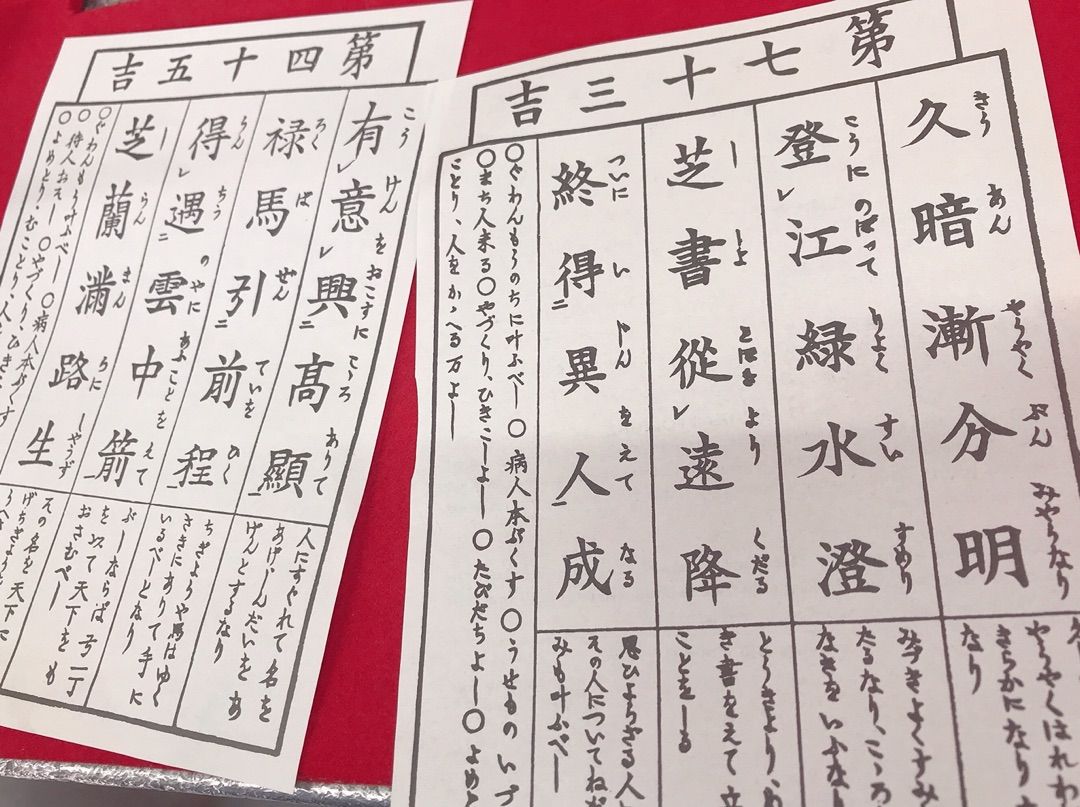 第七十三吉
久暗漸分明
きう あん やうやく ぶん みやうなり
登江緑水澄
こうに のぼつて りよく すい すめり
芝書從遠降
しよ とほき より くだる
終得異人成
ついに い じん をえて なる
やうやくはれわ
きらかになり
なり
みづきよくすみ
たるなり、こゝろ
なきをいふな
とうきより、あ
き書をえて立
ことをしも
思ひよらざる人
その人についてねだ
みも叶ふべし
〇ぐわんもうのちに叶ふべし〇病人本ぷくす〇うせものいづ
〇まち人来る〇やづくり、ひきこしよし〇たびだちよし〇よめと
ことり、人をかゝへる万よし
第四十五吉
有意興高顯
こう けん をおこすに こゝろ ありて
禄馬引前程
ろく ば ぜん ていを ひく
得遇雲中箭
らん ちう のやに あふことを えて
芝蘭滿路生
らん まん ろに しやうず
人にすぐれて名を
あげ、しんだいをあ
げんとするなり
ちぎようや馬はゆく
さきにありて手に
いるべしとなり
ぶしならば弓一丁
を以て天下をも
おさむべし
その名を天下に
〇ぐわんもう叶ふべし〇病人本ぷくす
〇待人おそし〇やづくり、ひきこ
〇よめとり、むことり、人を